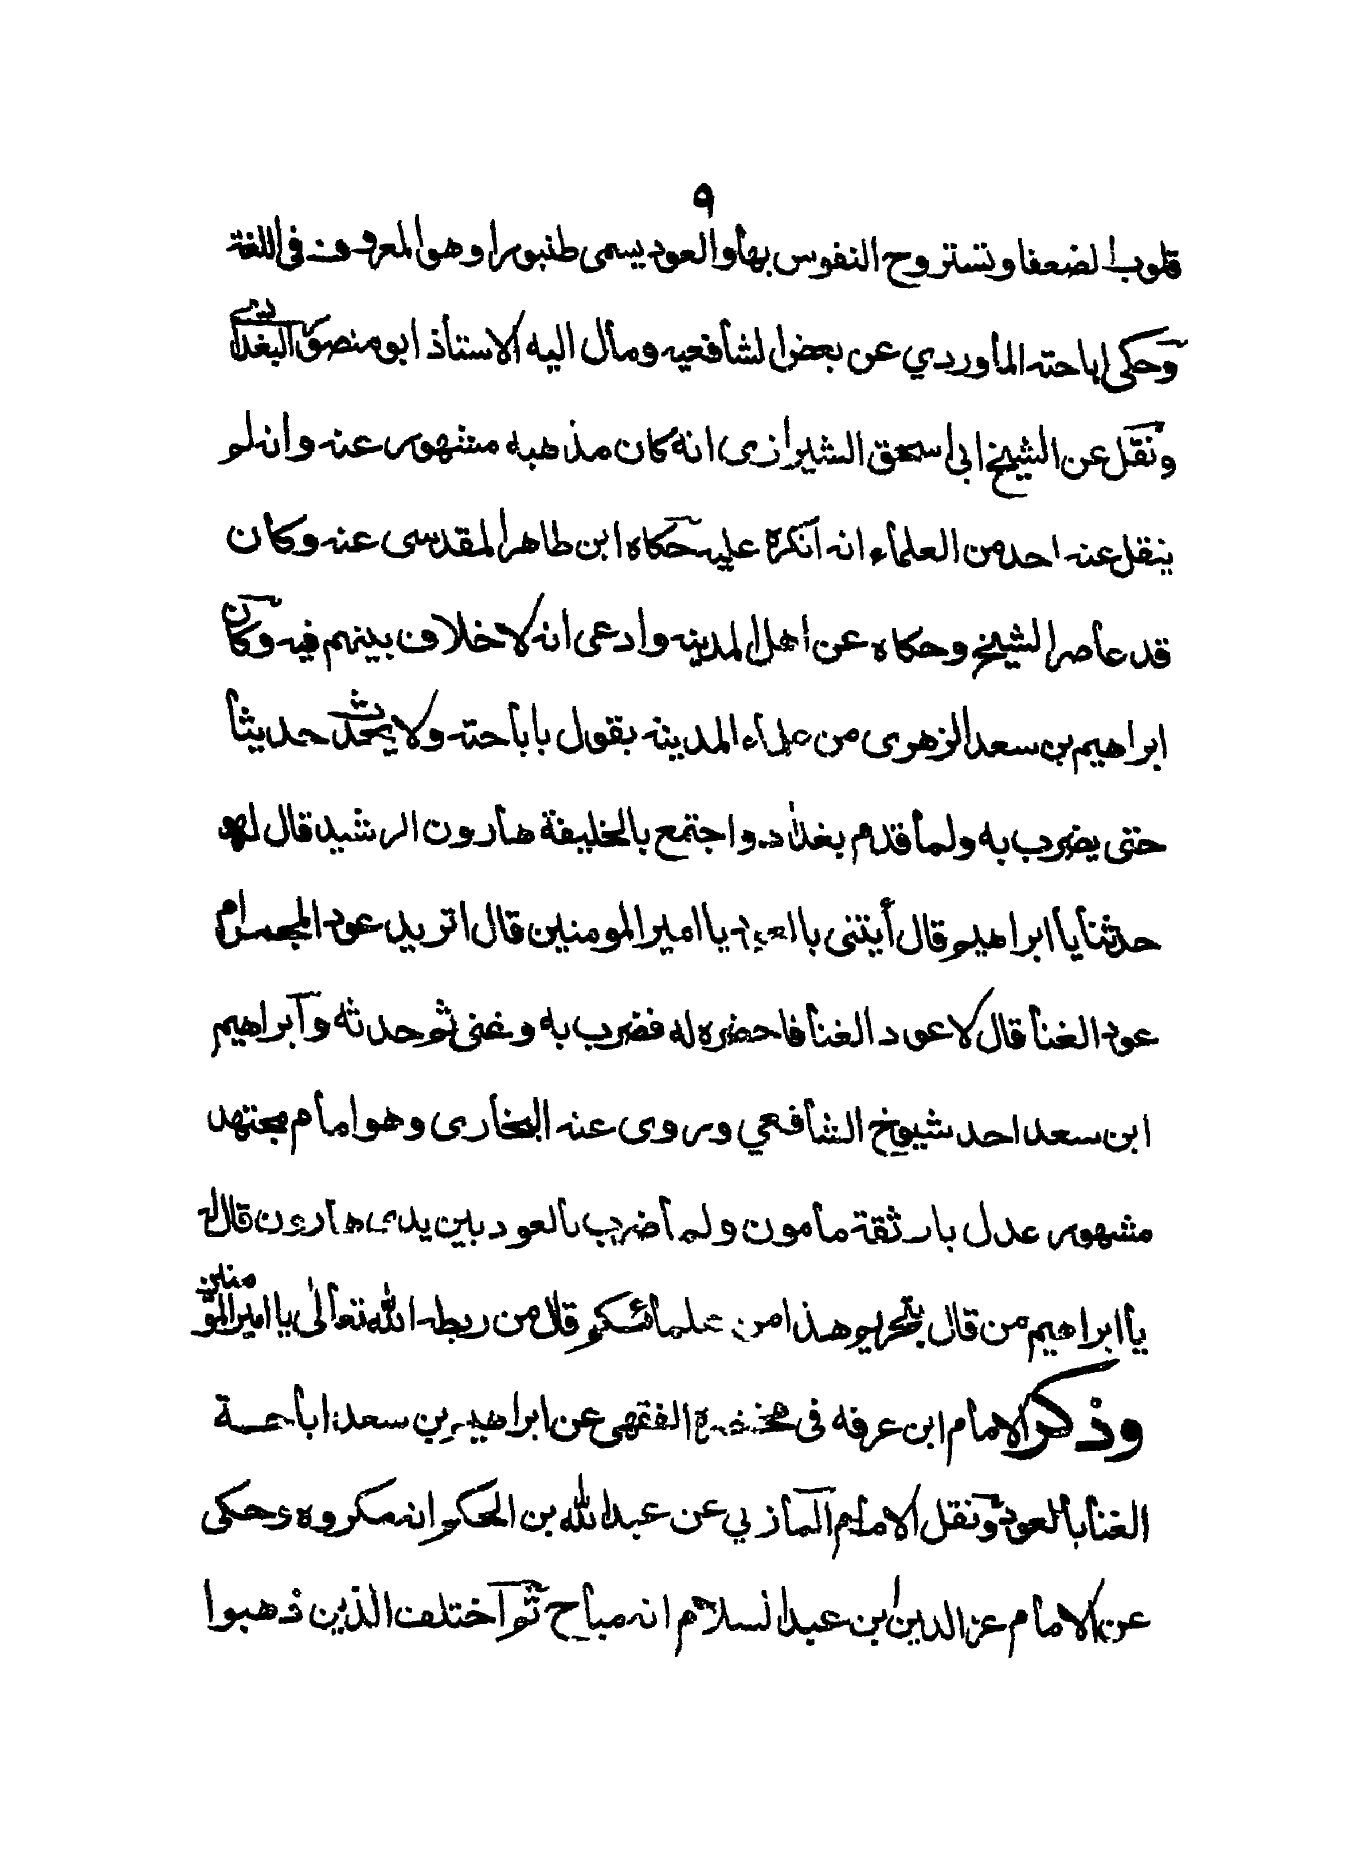 ٩
قلوب الضعفا وتستروح النفوس بها والعود يسمى طنبورا وهو المعروف في اللغة
وحكى اباحته الماوردي عن بعض الشافعيه ومال اليه الاستاذ ابو منصور البغدادي
ونقل عن الشيخ ابي اسحق الشيرازى انه كان مذهبه مشهور عنه وانه لم
ينقل عنه احد من العلماء انه انكره عليه حكاه ابن طاهر المقدسى عنه وكان
قد عاصر الشيخ وحكاه عن اهل المدينه وادعى انه لا خلاف بينهم فيه وكان
ابراهيم بن سعد الزهرى من علماء المدينه يقول باباحته ولا يحدث حديثا
حتى يضرب به ولما قدم بغداد واجتمع بالخليفة هارون الرشيد قال له
حدثنا يا ابراهيم قال أيتنى بالعود يا امير المومنين قال اتريد عود المجمر ام
عود الغنا قال لا عود الغنا فاحضره له فضرب به وغنى ثم حدثه وابراهيم
ابن سعد احد شيوخ الشافعي وروى عنه البخارى وهو امام مجتهد
مشهور عدل بار ثقة مامون ولما ضرب بالعود بين يدى هارون قال له
يا ابراهيم من قال بتحريم هذا من علمائكم قال من ربطه الله تعالى يا امير المومنين
وذكر الامام ابن عرفه فى مختصره الفقهى عن ابراهيم بن سعد اباحة
الغنا بالعود ونقل الامام المازري عن عبد الله بن الحكم انه مكروه وحكى
عن الامام عز الدين ابن عبد السلام انه مباح ثم اختلف الذين ذهبوا